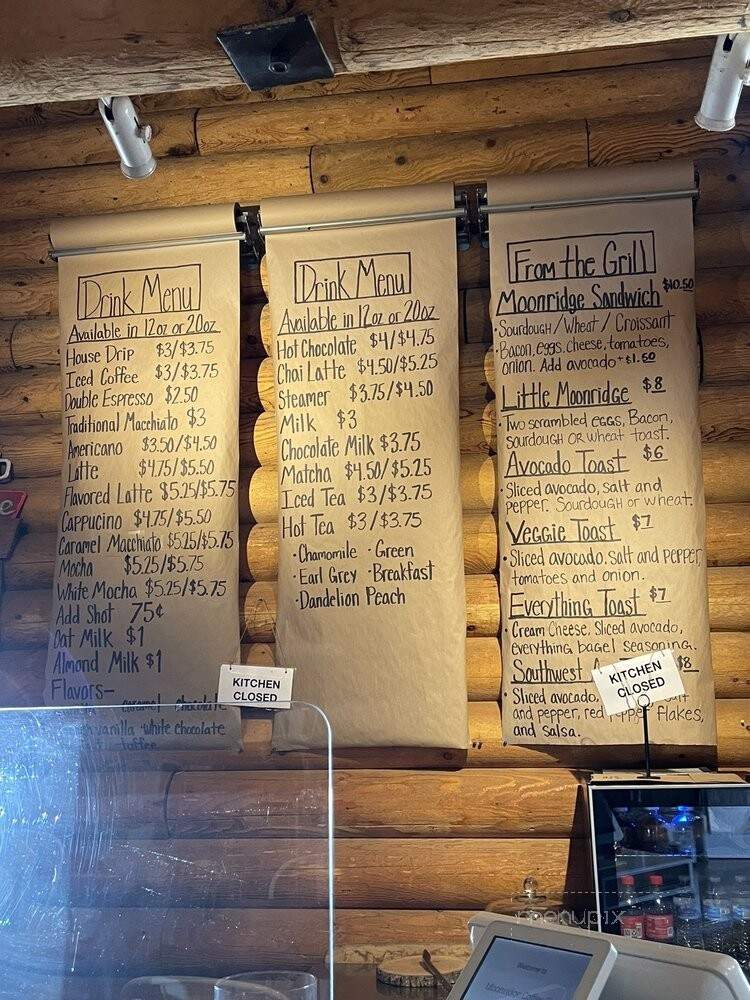 Drink Menu
Available in 12oz or 20oz
House Drip $3/$3.75
Iced Coffee $3/$3.75
Double Espresso $2.50
Traditional Macchiato $3
Americano $3.50/$4.50
Latte $4.75/$5.50
Flavored Latte $5.25/$5.75
Cappucino $4.75/$5.50
Caramel Macchiato $5.25/$5.75
Mocha $5.25/$5.75
White Mocha $5.25/$5.75
Add Shot 75¢
Oat Milk $1
Almond Milk $1
Flavors-
caramel chocolate
vanilla •white chocolate
toffee
KITCHEN
CLOSED
Drink Menu
Available in 12oz or 20oz
Hot Chocolate $4/$4.75
Chai Latte $4.50/$5.25
Steamer $3.75/$4.50
Milk $3
Chocolate Milk $3.75
Matcha $4.50/$5.25
Iced Tea $3/$3.75
Hot Tea $3/$3.75
•Chamomile •Green
•Earl Grey •Breakfast
•Dandelion Peach
From the Grill
Moonridge Sandwich $10.50
•Sourdough/Wheat/Croissant
•Bacon, eggs, cheese, tomatoes,
onion. Add avocado +$1.50
Little Moonridge $8
•Two scrambled eggs, Bacon,
sourdough OR wheat toast.
Avocado Toast $6
•Sliced avocado, salt and
pepper. Sourdough or wheat.
Veggie Toast $7
•Sliced avocado, salt and pepper,
tomatoes and onion.
Everything Toast $7
•Cream Cheese, Sliced avocado,
everything bagel seasoning.
Southwest $8
•Sliced avocado,
and pepper, red pepper flakes,
and salsa.
KITCHEN
CLOSED
menupix
Welcome to